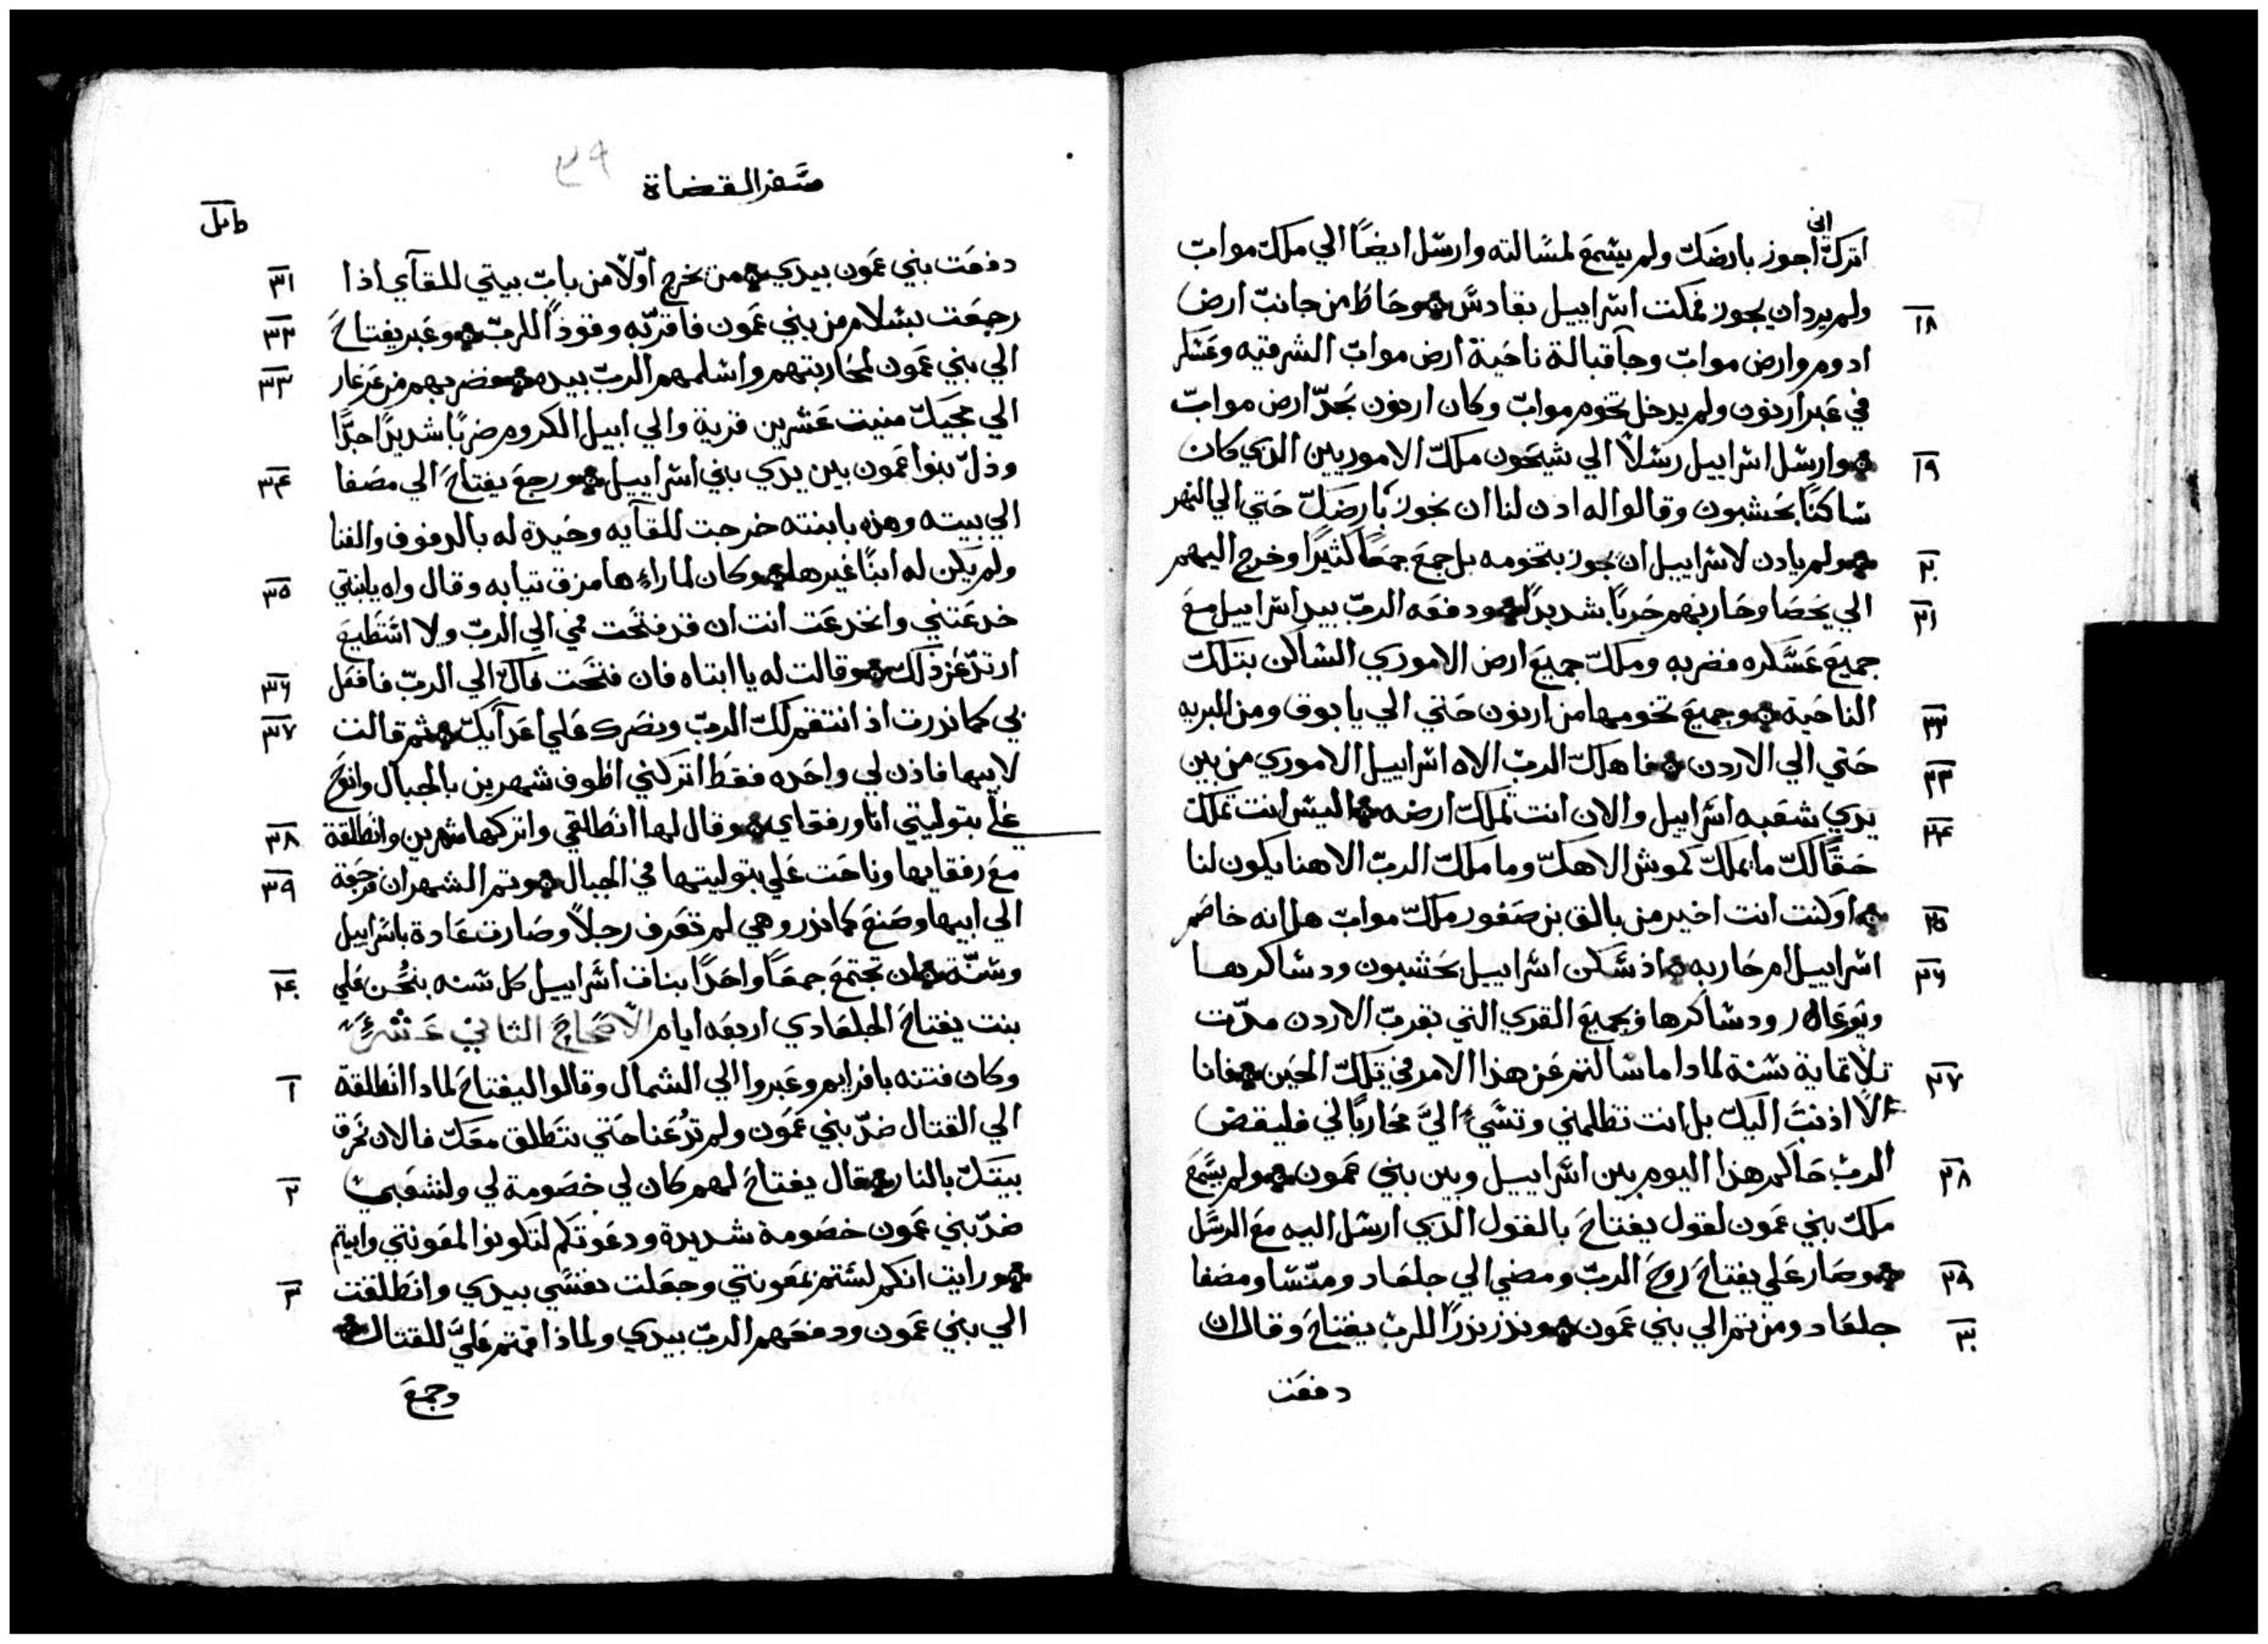 اني
اتركّ اجوز بارضكّ ولم يسمع لمسالته وارسل ايضًا الي ملكّ مواب
ولم يرد ان يجوز فمكت اسراييل بقادس وحاط من جانب ارض
١٨
ادوم وارض مواب وجا قبالة ناحية ارض مواب الشرقيه وعسكر
في عبر ارنون ولم يدخل تخوم مواب وكان ارنون بحدّ ارض مواب
وارسل اسراييل رسلاً الي سيحون ملكّ الاموريين الدي كان
١٩
ساكنًا بحشبون وقالوا له ادن لنا ان نجوز بارضكّ حتي الي النهر
ولم يادن لاسراييل ان يجوز بتخومه بل جمع جمعًا كثيرًا وخرج اليهم
٢٠
الي يحصا وحاربهم حربًا شديدًا ودفعه الربّ بيد اسراييل مع
٢١
جميع عسكره فضربه وملكّ جميع ارض الاموري الساكن بتلكّ
الناحية وجميع تخومها من ارنون حتي الي يابوق ومن البريه
٢٢
حتي الي الاردن فاهلكّ الربّ الاه اسراييل الاموري من بين
٢٣
يدي شعبه اسراييل والان انت تملكّ ارضه اليس انت تملكّ
٢٤
حقًا لكّ ما يملكّ كموش الاهكّ وما ملكّ الربّ الاهنا يكون لنا
او كنت انت اخير من بالق بن صفور ملكّ مواب هل انه خاصم
٢٥
اسراييل ام حاربه اذ سكن اسراييل بحشبون ودساكرها
٢٦
وبوعال ودساكرها وبجميع القري التي بقرب الاردن مدّت
تلاتماية سنة لمادا ما سالتم عن هذا الامر في تلكّ الحين فانا
٢٧
لا اذنبت اليكّ بل انت تظلمني وتسيُ اليَّ محاربًا لي فليقض
الربّ حاكم هذا اليوم بين اسراييل وبين بني عمون ولم يسمع
٢٨
ملكّ بني عمون لقول يفتاح بالقول الدي ارسل اليه مع الرسل
وصار علي يفتاح روح الربّ ومضي الي جلعاد ومنسا ومصفا
٢٩
جلعاد ومن تم الي بني عمون ونذر نذرًا للربّ يفتاح وقال ان
٣٠
دفعت
سفر القضاة
٣٩
دفعت بني عمون بيدي من يخرج اوّلاً من باب بيتي للقآي اذا
٣١
رجعت بسلام من بني عمون فاقرّبه وقودًا للربّ وعبر يفتاح
٣٢
الي بني عمون لمحاربتهم واسلمهم الربّ بيده فضربهم من عرعار
٣٣
الي مجيكّ منيت عشرين قرية والي ابيل الكروم ضربًا شديدًا جدًّا
وذلّ بنوا عمون بين يدي بني اسراييل ورجع يفتاح الي مصفا
٣٤
الي بيته وهذه بابنته خرجت للقآيه وحيدة له بالدفوف والغنا
ولم يكن له ابنًا غيرها وكان لما راءها مزق تيابه وقال واه يابنتي
٣٥
خدعتني وانخدعت انت ان قد فتحت فمي الي الربّ ولا استطيع
ارتدّ عن ذلكّ وقالت له يا ابتاه فان فتحت فاكّ الي الربّ فافعل
٣٦
بي كما نذرت اذ انتقم لكّ الربّ ونصرك علي اعدآيكّ ثم قالت
٣٧
لابيها فاذن لي واحده فقط اتركني اطوف شهرين بالجبال وانوح
علي بتوليتي انا ورفقاي وقال لها انطلقي واتركها شهرين وانطلقة
٣٨
مع رفقايها وناحت علي بتوليتها في الجبال وتم الشهران فرجعة
٣٩
الي ابيها وصنع كما نذر وهي لم تعرف رجلاً وصارت عادة باسراييل
وسنّة ان تجتمع جمعًا واحدًا بنات اسراييل كل سنه ينحن علي
٤٠
بنت يفتاح الجلعادي اربعه ايام الاصحاح الثاني عشر
وكان فتنه بافرايم وعبروا الي الشمال وقالوا ليفتاح لمادا انطلقة
١
الي القتال ضدّ بني عمون ولم تدُعنا حتي ننطلق معكّ فالان نحرق
بيتكّ بالنار فقال يفتاح لهم كان لي خصومة لي ولشعبي
٢
ضدّ بني عمون خصومة شديدة ودعوتكم لتكونوا لمعونتي وابيتم
ورايت انكم لستم بمعونتي وجعلت نفسي بيدي وانطلقت
٣
الي بني عمون ودفعهم الربّ بيدي ولماذا قمتم عليَّ للقتال
وجمع